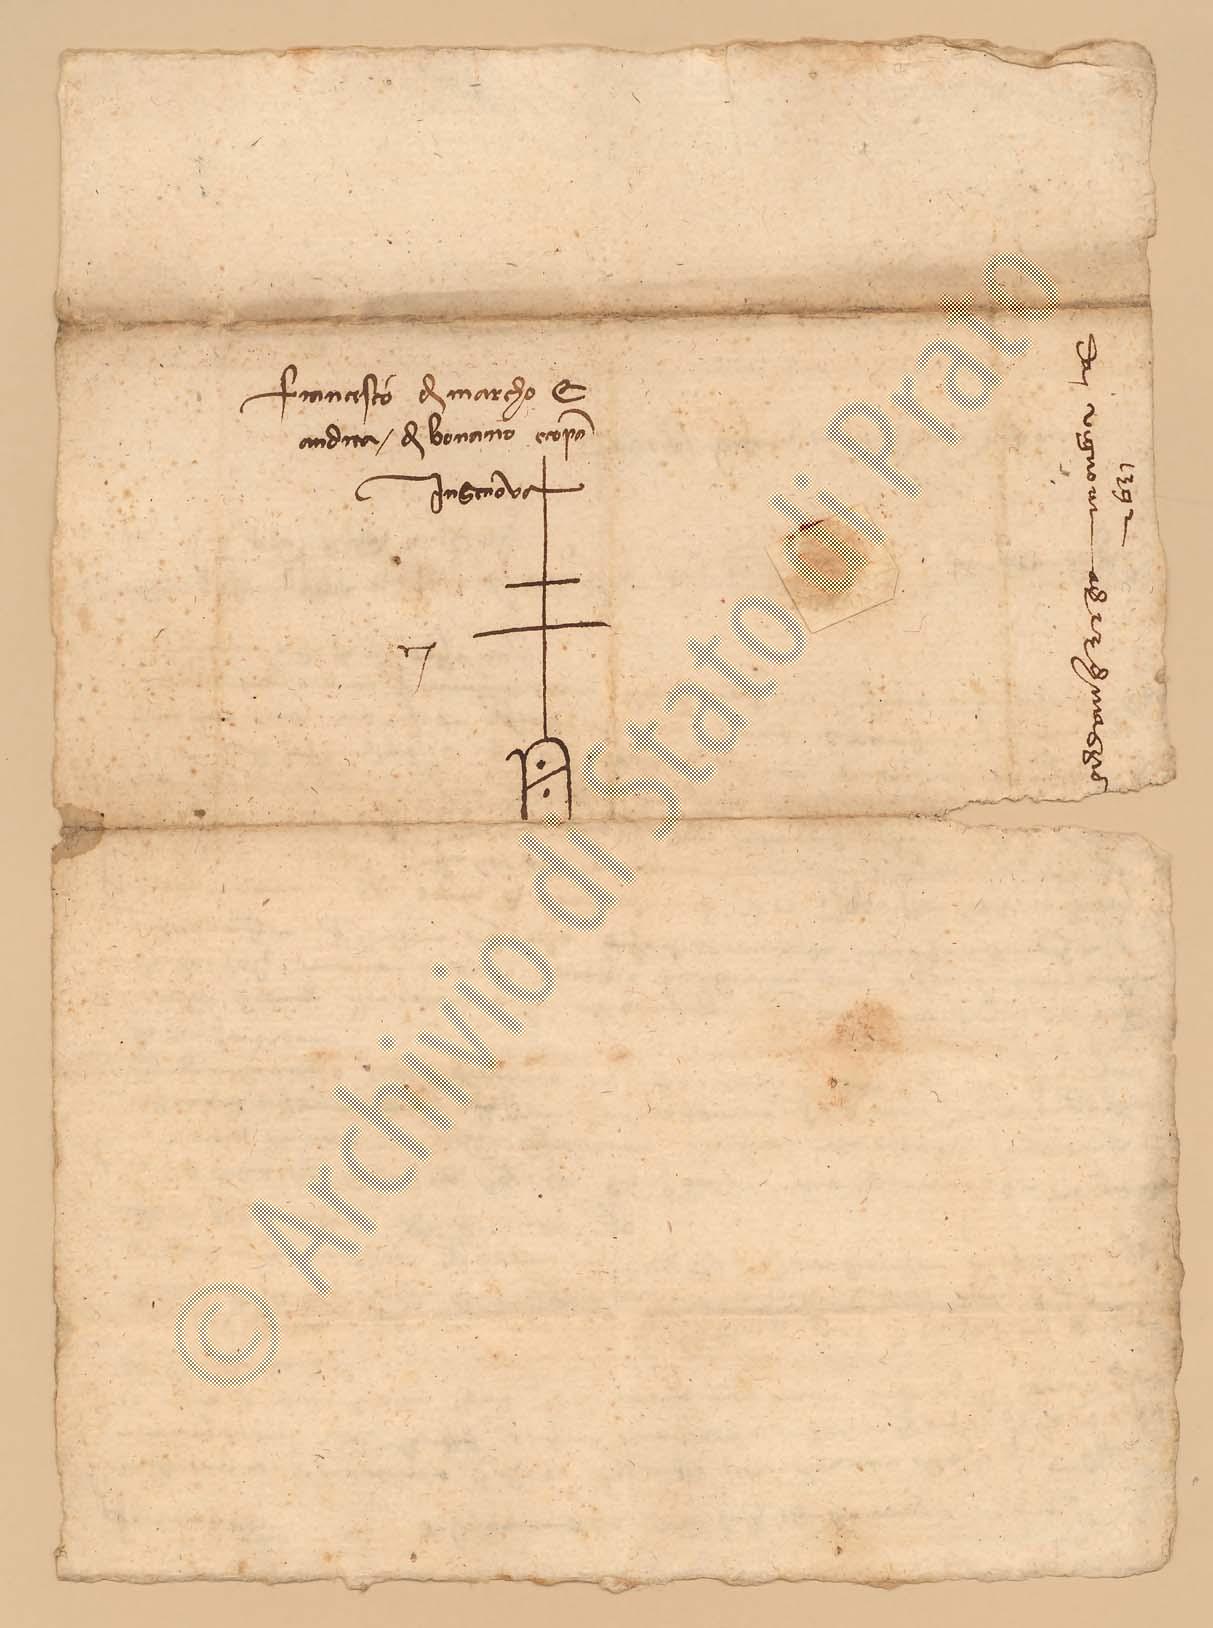 Franciescho di marcho e
andrea di bonano e conpa
In Genova
7
1392
Da vignone a dì 23 di maggio
© Archivio di Stato di Prato